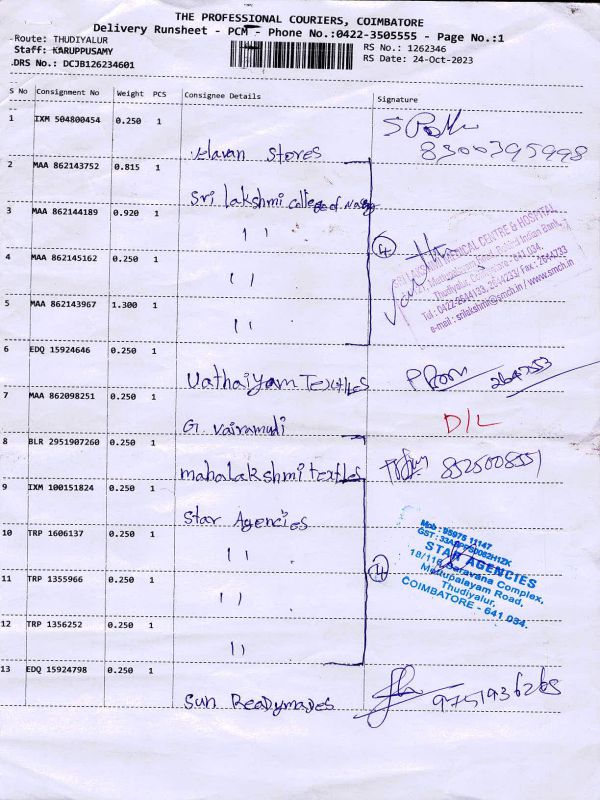 THE PROFESSIONAL COURIERS, COIMBATORE
Delivery Runsheet - PCM - Phone No.:0422-3505555 - Page No.:1
Route: THUDIYALUR
RS No.: 1262346
Staff: KARUPPUSAMY
RS Date: 24-Oct-2023
DRS No.: DCJB126234601
S No Consignment No Weight PCS Consignee Details Signature
1 IXM 504800454 0.250 1
Stores 8300395998
2 MAA 862143752 0.815 1
Sri Lakshmi College of
3 MAA 862144189 0.920 1
" 4
4 MAA 862145162 0.250 1
"
5 MAA 862143967 1.300 1
"
SRI LAKSHMI MEDICAL CENTRE & HOSPITAL
Mettupalayam Road, Indian Bank
Thudiyalur, Coimbatore - 641 034.
Tel : 0422-2644133, 2644233/ Fax : 2644733
e-mail : srilakshmi@smch.in / www.smch.in
6 EDQ 15924646 0.250 1
Vathaiyam Textles
7 MAA 862098251 0.250 1
G. Vairamudi D/L
8 BLR 2951907260 0.250 1
mahalakshmi textles 8525008551
9 IXM 100151824 0.250 1
Star Agencies
10 TRP 1606137 0.250 1
" 4
11 TRP 1355966 0.250 1
"
12 TRP 1356252 0.250 1
"
Mob : 95975 11147
STAR AGENCIES
18/118 Saravana Complex,
Mettupalayam Road,
Thudiyalur,
COIMBATORE - 641 034.
13 EDQ 15924798 0.250 1
Sun Readymades 9751936265